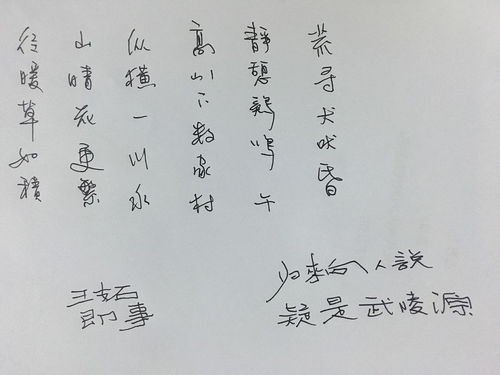 径暖草如積
山晴花更繁
纵横一川水
高山下数家村
靜憩鸡鳴午
荒寻犬吠昏
归来向人説
疑是武陵源
王安石
即事